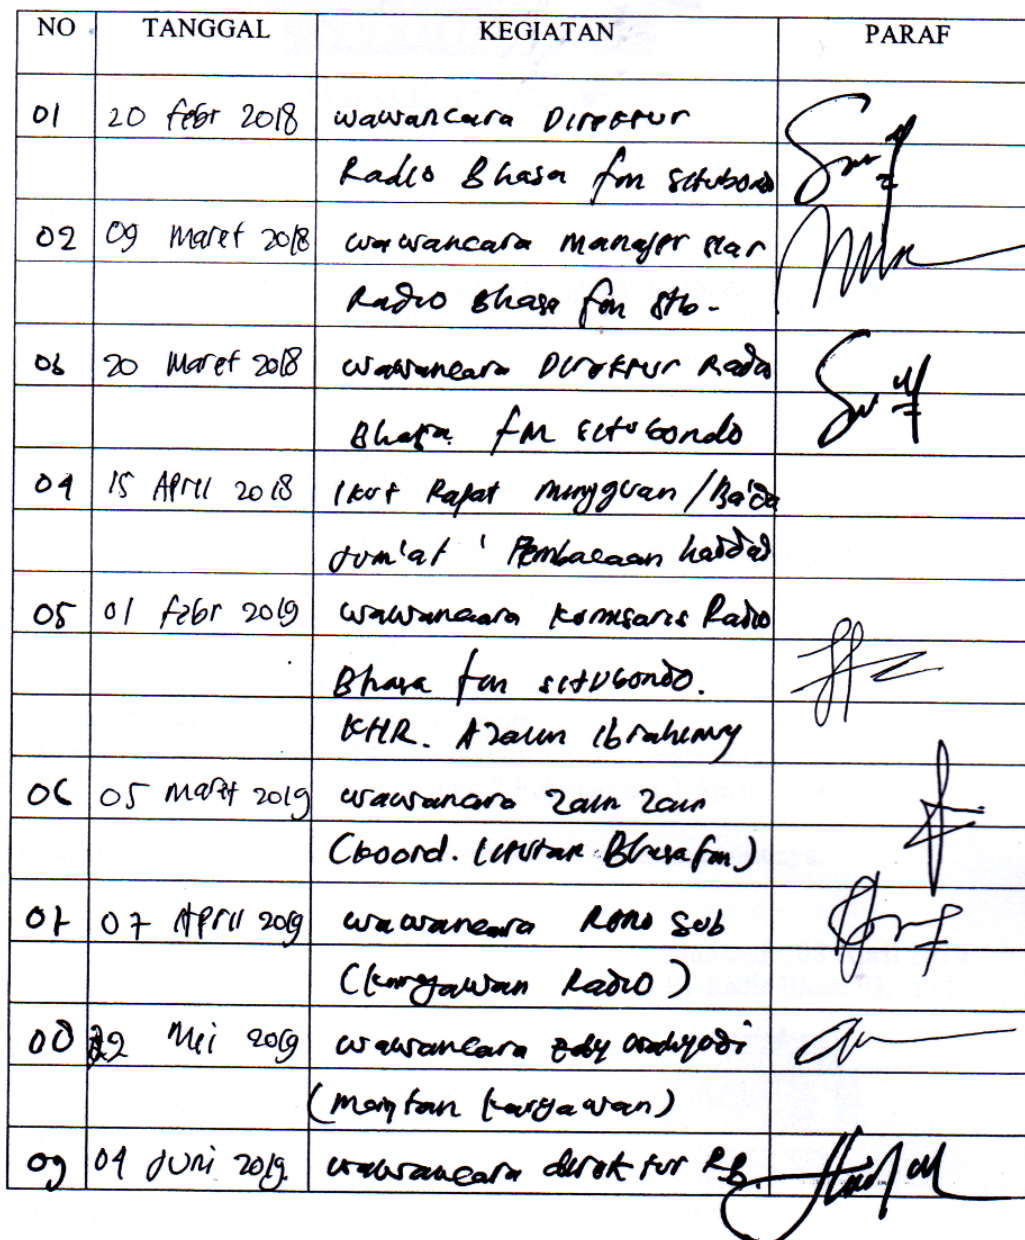 NO TANGGAL KEGIATAN PARAF
01 20 febr 2018 wawancara Direktur
Radio Bhasa fm situbondo
02 09 maret 2018 wawancara manajer
Radio Bhasa fm stb.
03 20 Maret 2018 wawancara Direktur Radio
Bhasa fm situbondo
04 15 April 2018 Ikut Rapat mingguan / Ba'da
Jum'at ' Pembacaan haddad
05 01 febr 2019 wawancara Komisaris Radio
Bhasa fm situbondo.
KHR. Azaim Ibrahimy
06 05 maret 2019 wawancara Zain Zain
(koord. Bhasa fm)
07 07 April 2019 wawancara Rono Sub
(karyawan Radio)
08 22 Mei 2019 wawancara Edy wahyudi
(mantan karyawan)
09 04 Juni 2019. wawancara direktur RB.